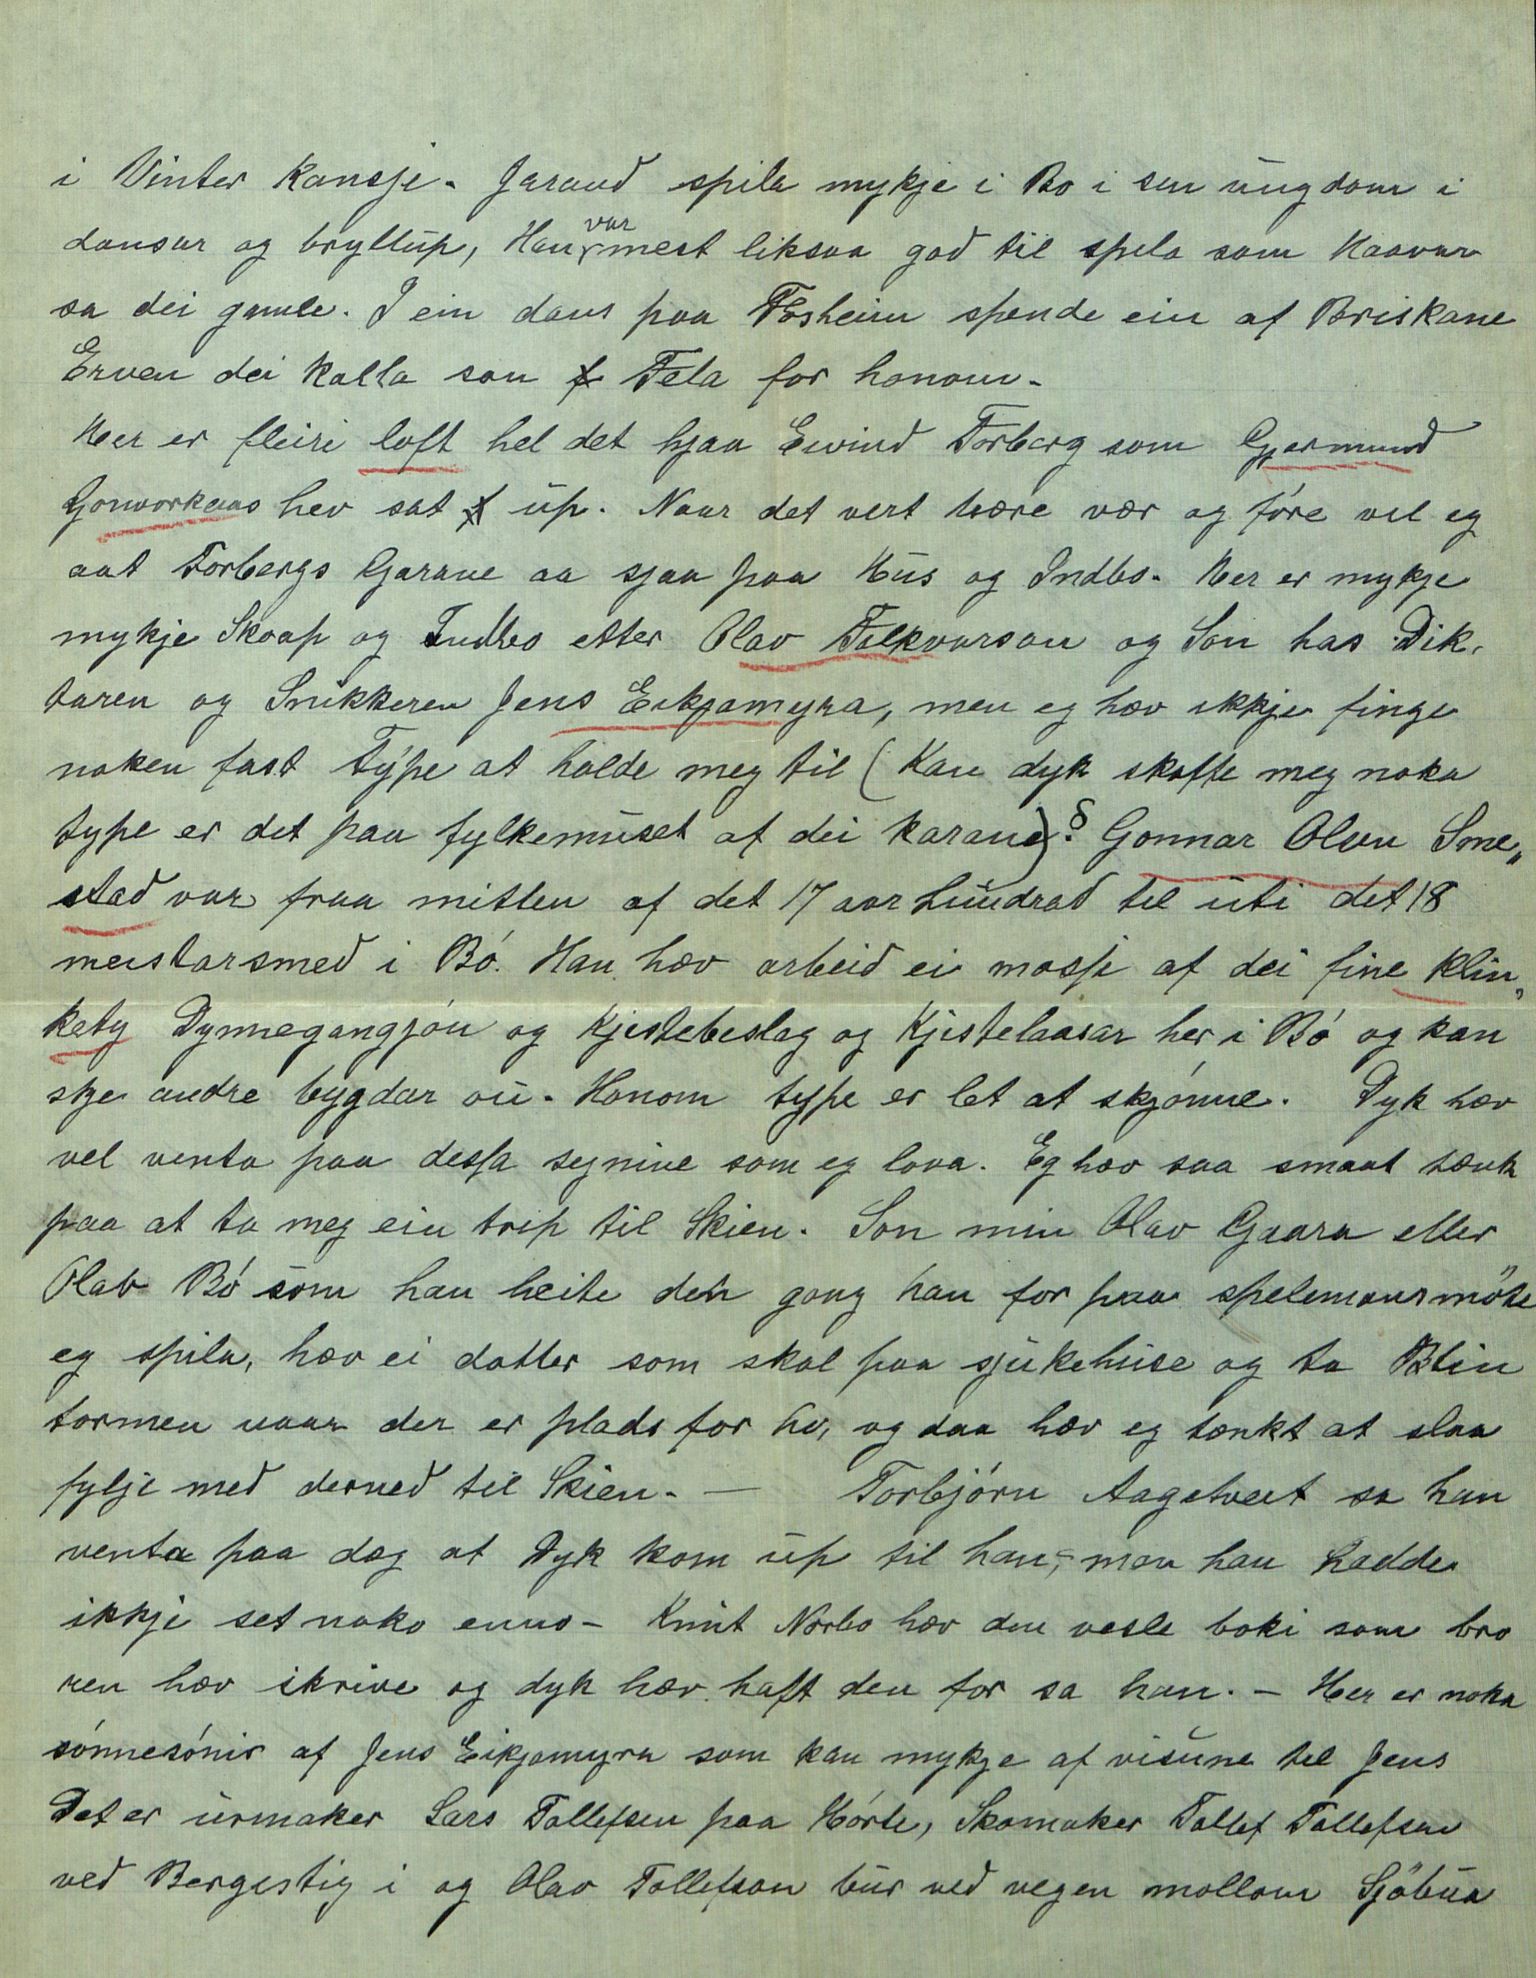 i Vinter kansje. Jaraud spila mykje i Bo i sin ungdom i
dansar og bryllup, Han var mest liksaa god til spela som Haavar
sa dei gamle. I ein dans paa Fosheim spende ein af Briskane
Erven dei kalla son Fela for honom.
Her er fleiri loft hel det hjaa Eivind Forberg som Gjermund
Gonvorkaas hev sat up. Naar det vert bære vær og føre vil eg
aat Forbergs Garane aa sjaa paa Hus og Indbo. Her er mykje
mykje Skaap og Indbo etter Olav Falkvarson og Son has Dik,
taren og Snikkeren Jens Eikjamyra, men eg hæv ikkje finge
noken fast Type at halde meg til (Kan dyk skaffe meg noka
type er det paa fylkemuset af dei karane)? Gonnar Olsn Sme„
stad var fraa mitten af det 17 aarhundrad til uti det 18
meistarsmed i Bó. Han hæv arbeid ei masse af dei fine Klin„
kety Dynnegangjón og Kjistebeslag og Kjistelaasar her i Bó og kan
skje andre bygdar ou. Honom type er let at skjónne. Dyk hæv
vel venta paa dessa segnine som eg lova. Eg hæv saa smaat tænk
paa at ta meg ein trip til Skien. Son min Olav Gaara eller
Olav Bó som han heite den gong han for paa spelemansmöte
eg spila, hæv ei datter som skal paa sjukehuse og ta Blin
tarmen naar der er plads for ho, og daa hæv eg tænkt at slaa
fylje med derned til Skien. — Torbjórn Aagetveit sa han
venta paa dag at Dyk kom up til han, men han hadde
ikkje set noko enno – Knut Norbo hæv den vesle boki som bro
ren hæv skrive og dyk hæv haft den for sa han. – Her er noka
sónnesónir af Jens Eikjamyra som kan mykje af visune til Jens
Det er urmaker Lars Tollefsen paa Hórte, Skomaker Tollef Tollefsen
ved Bergestig i og Olav Tollefson bur ved vegen mollom Sjöbua